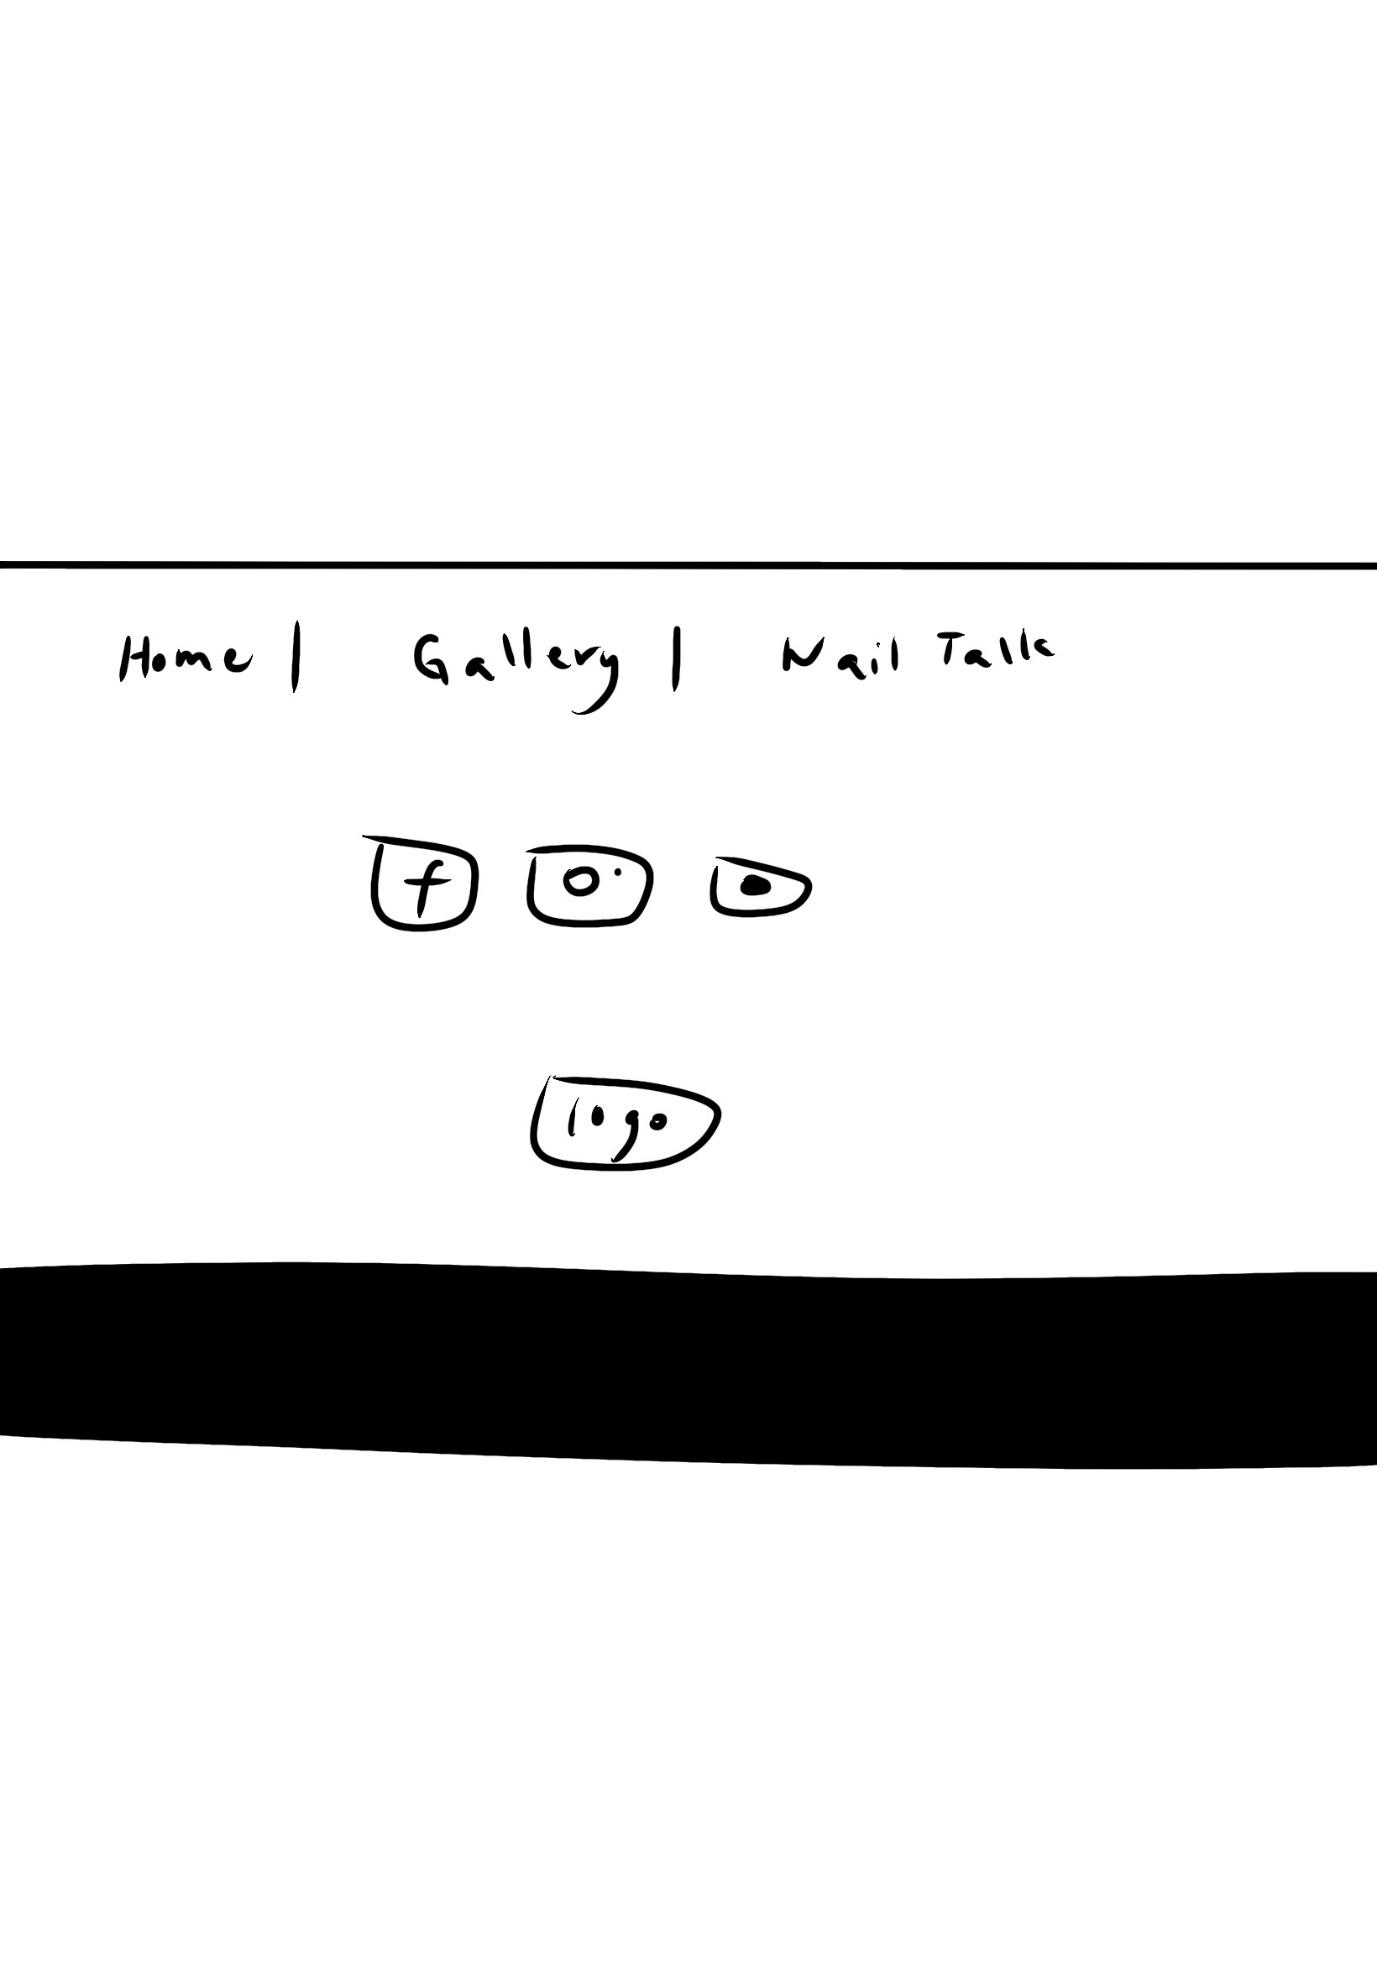 Home | Gallery | Nail Talk
f
logo